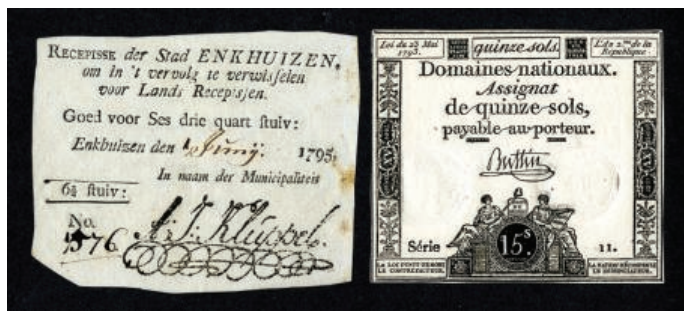 RECEPISSE der Stad ENKHUIZEN,
om in 't vervolg te verwisselen
voor Lands Recepissen.
Goed voor Ses drie quart stuiv:
Enkhuizen den 1 Juny. 1795.
In naam der Municipaliteit
6¾ stuiv:
No.
1576 A: J: Kluppel.
Loi du 23 Mai
1793.
quinze sols.
L'An 2.me de la
République.
Domaines nationaux.
Assignat
de quinze sols,
payable au porteur.
Buttin
Série 15.s 11.
LA LOI PUNIT DE MORT
LE CONTREFACTEUR.
LA NATION RÉCOMPENSE
LE DÉNONCIATEUR.